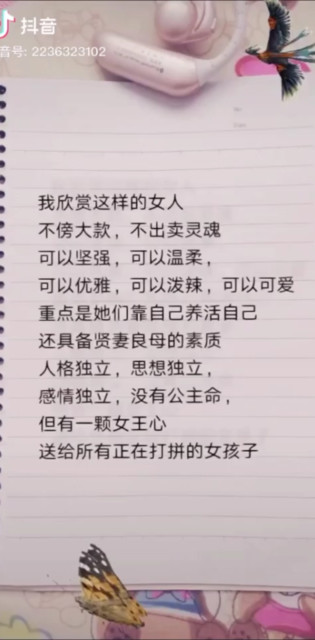 抖音
音号: 2236323102
我欣赏这样的女人
不傍大款，不出卖灵魂
可以坚强，可以温柔，
可以优雅，可以泼辣，可以可爱
重点是她们靠自己养活自己
还具备贤妻良母的素质
人格独立，思想独立，
感情独立，没有公主命，
但有一颗女王心
送给所有正在打拼的女孩子